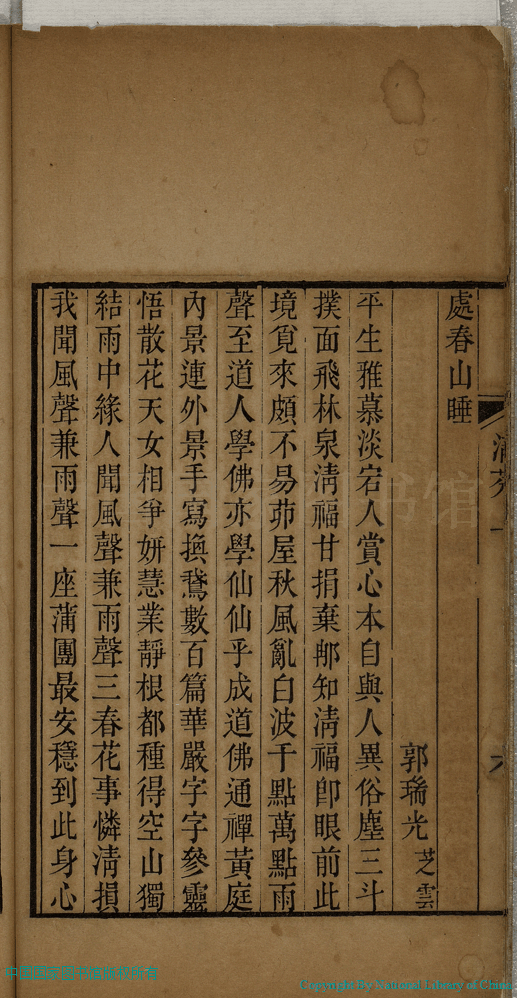 處春山睡
郭瑞光芝雲
平生雅慕淡宕人賞心本自與人異俗塵三斗
撲面飛林泉淸福甘捐棄那知淸福卽眼前此
境覓來頗不易茆屋秋風亂白波千點萬點雨
聲至道人學佛亦學仙仙乎成道佛通禪黃庭
內景連外景手寫換鵞數百篇華嚴字字參靈
悟散花天女相爭妍慧業靜根都種得空山獨
結雨中緣人聞風聲兼雨聲三春花事憐淸損
我聞風聲兼雨聲一座蒲團最安穩到此身心
Copyright By National Library of China